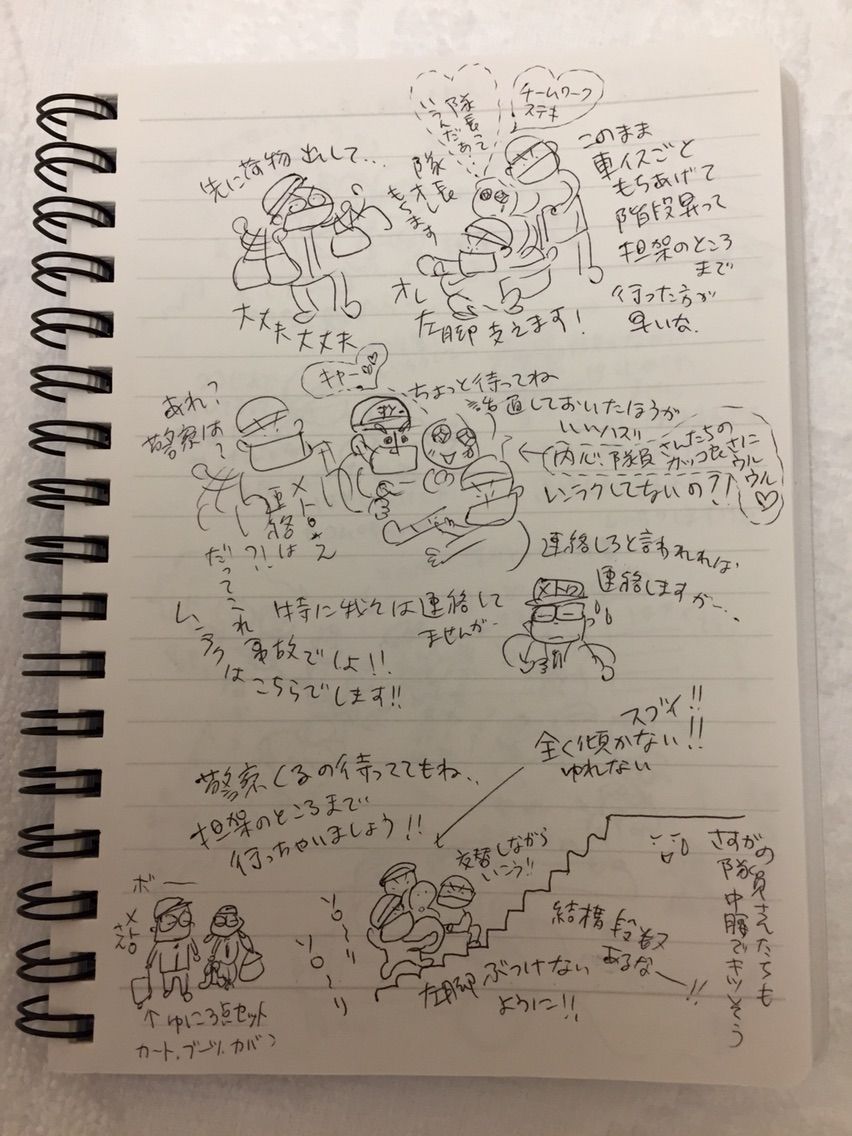 先に荷物出して…
大丈夫大丈夫
隊長って
いうんだあっ
チームワーク
ステキ
隊長
オレ
もちます
オレ
左脚支えます!
このまま
車イスごと
もちあげて
階段昇って
担架のところ
まで
行った方が
早いな.
あれ?
警察は?
キャー
ちょっと待ってね
直しておいたほうが
いいハズ!!
内心:隊員さんたちの
カッコ良さに
ウルウル
レンラクしてないの?!
メトロさん
連絡は
?!
だってこれ
事故でしょ!!
レンラクは
こちらでします!!
特に我々は連絡して
ませんがー
連絡しろと言われれば、
連絡しますがー…
メトロ
警察くるの待っててもね、、
担架のところまで
行っちゃいましょう!!
スゴイ!!
全く傾かない!!
ゆれない
交替しながら
いこう!!
ソロ〜リ
ソロ〜リ
左脚ぶつけない
ように!!
結構段数
あるなー!!
さすがの
隊員さんたちも
中腰でキツそう
ボー
メトロ
さん
↑ゆにころ点セット
カート、ブーツ、カバン